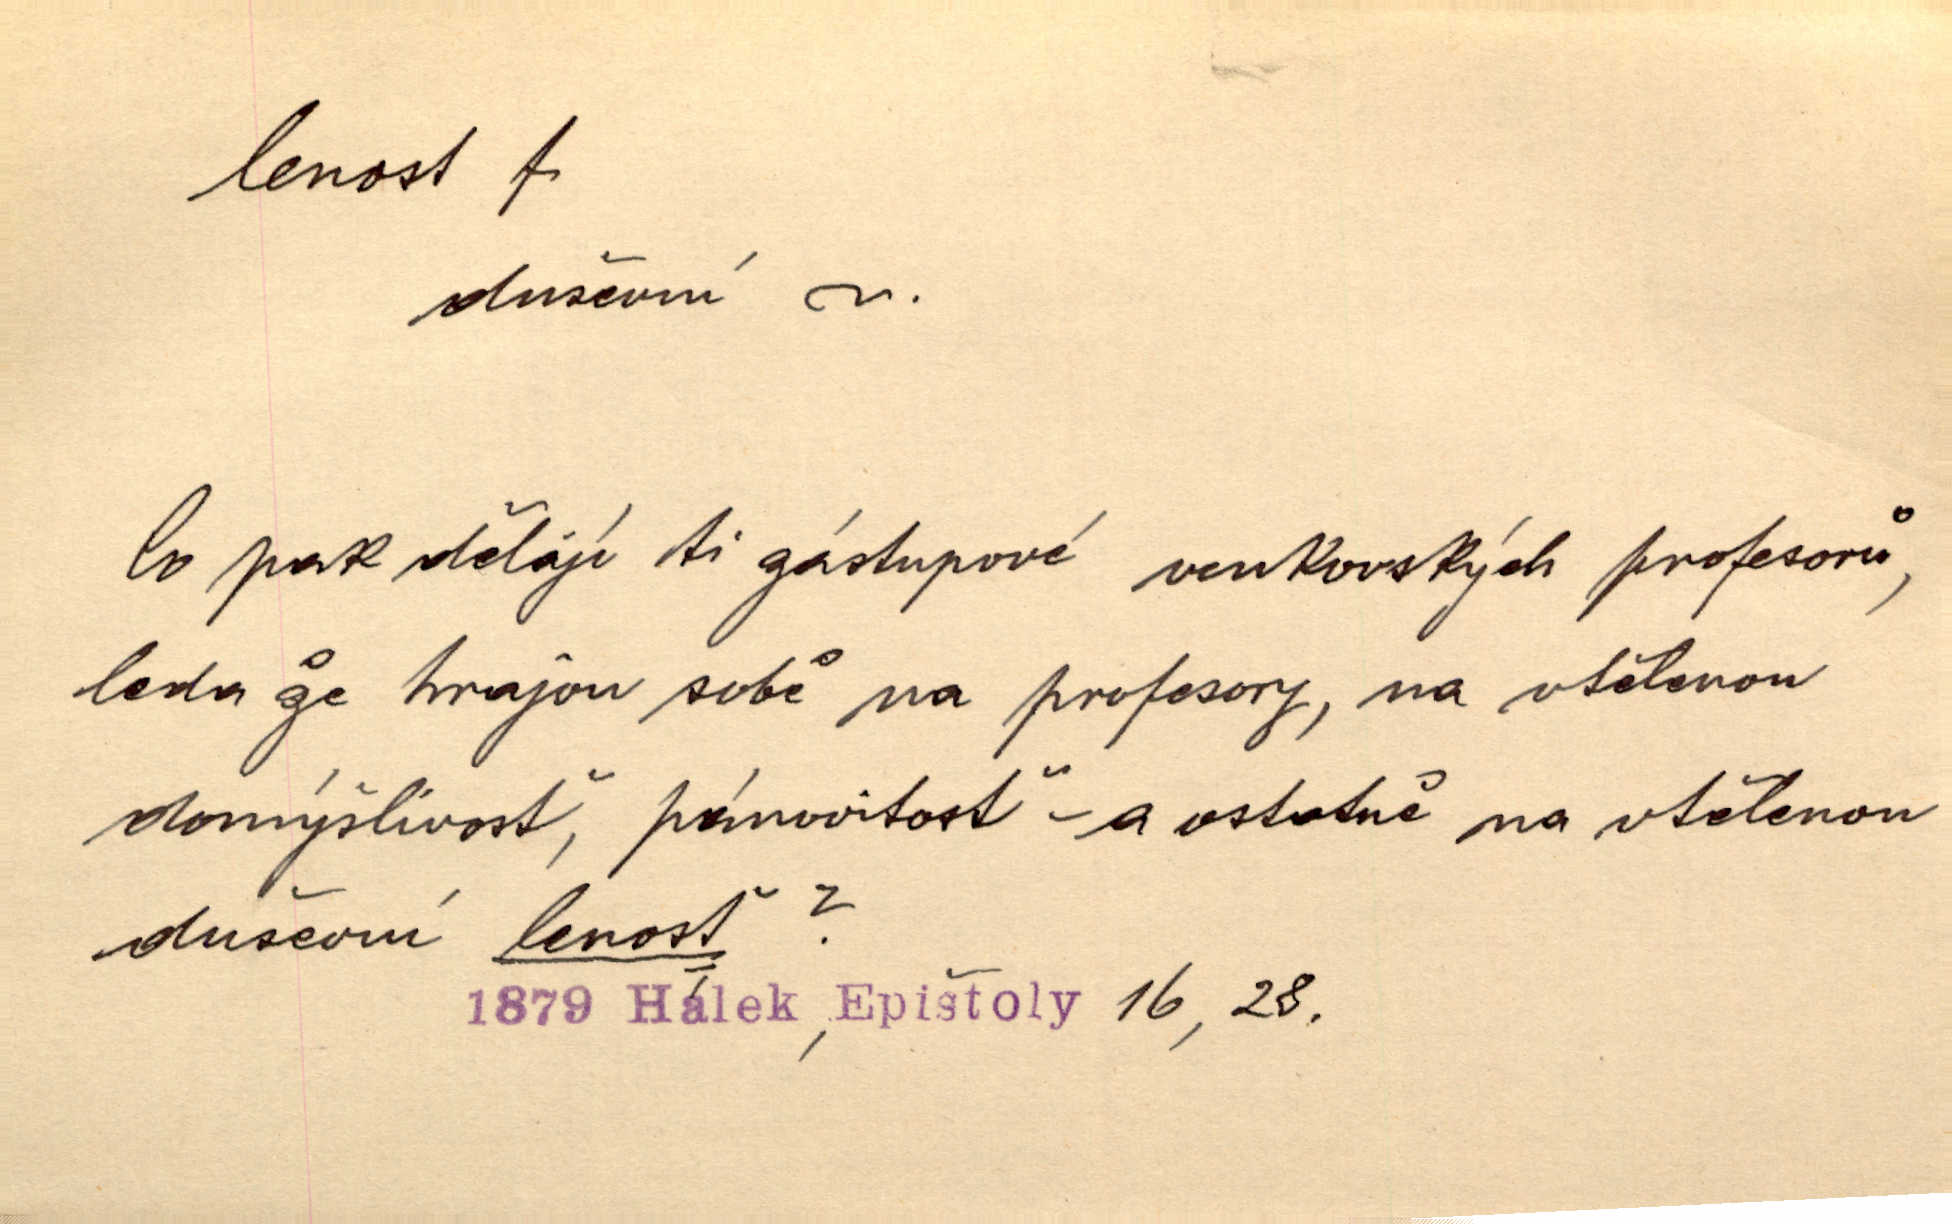 lenost f.
duševní ~.
Co pak dělají ti zástupové venkovských profesorů,
leda že hrajou sobě na profesory, na vtělenou
domýšlivosť, pánovitosť – a ostatně na vtělenou
duševní lenosť?
1879 Hálek, Epištoly 16, 28.